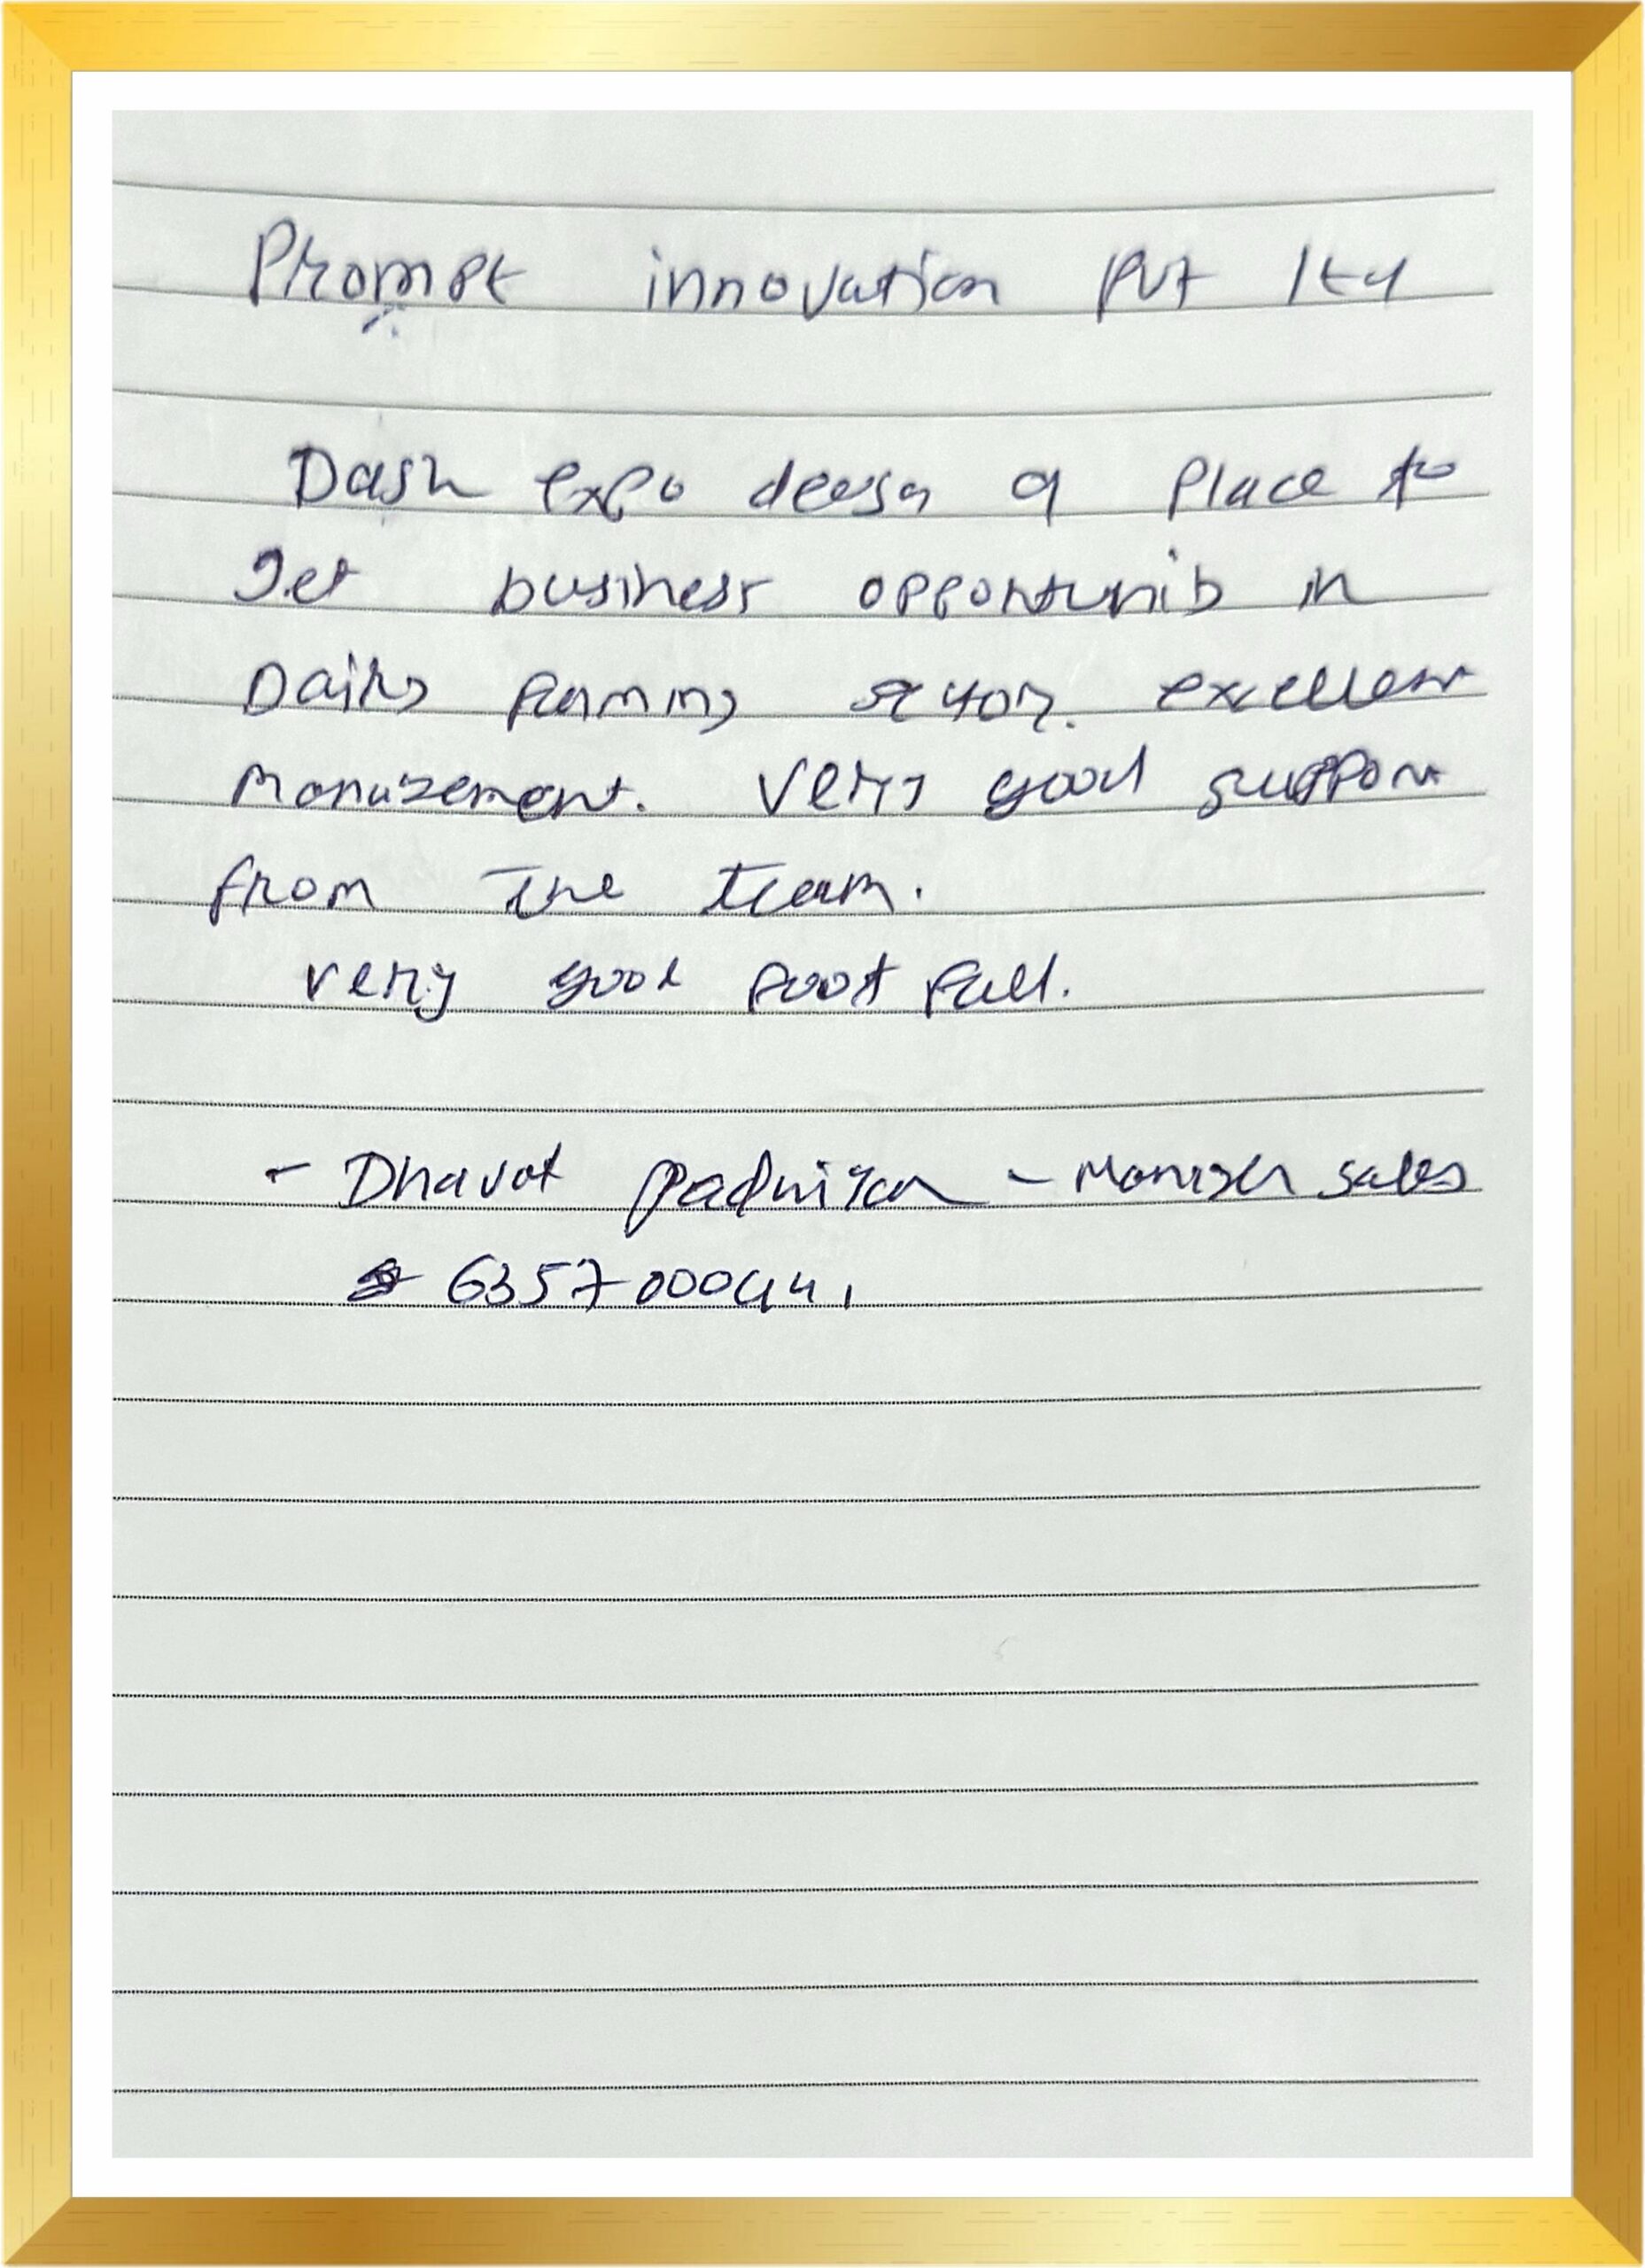 Prompt innovation Pvt ltd
Dash expo a place to
get business opportunity in
Dairy farming sector. excellent
management. Very good support
from the team.
very good foot fall.
- Dhaval - Manager sales
6357000441